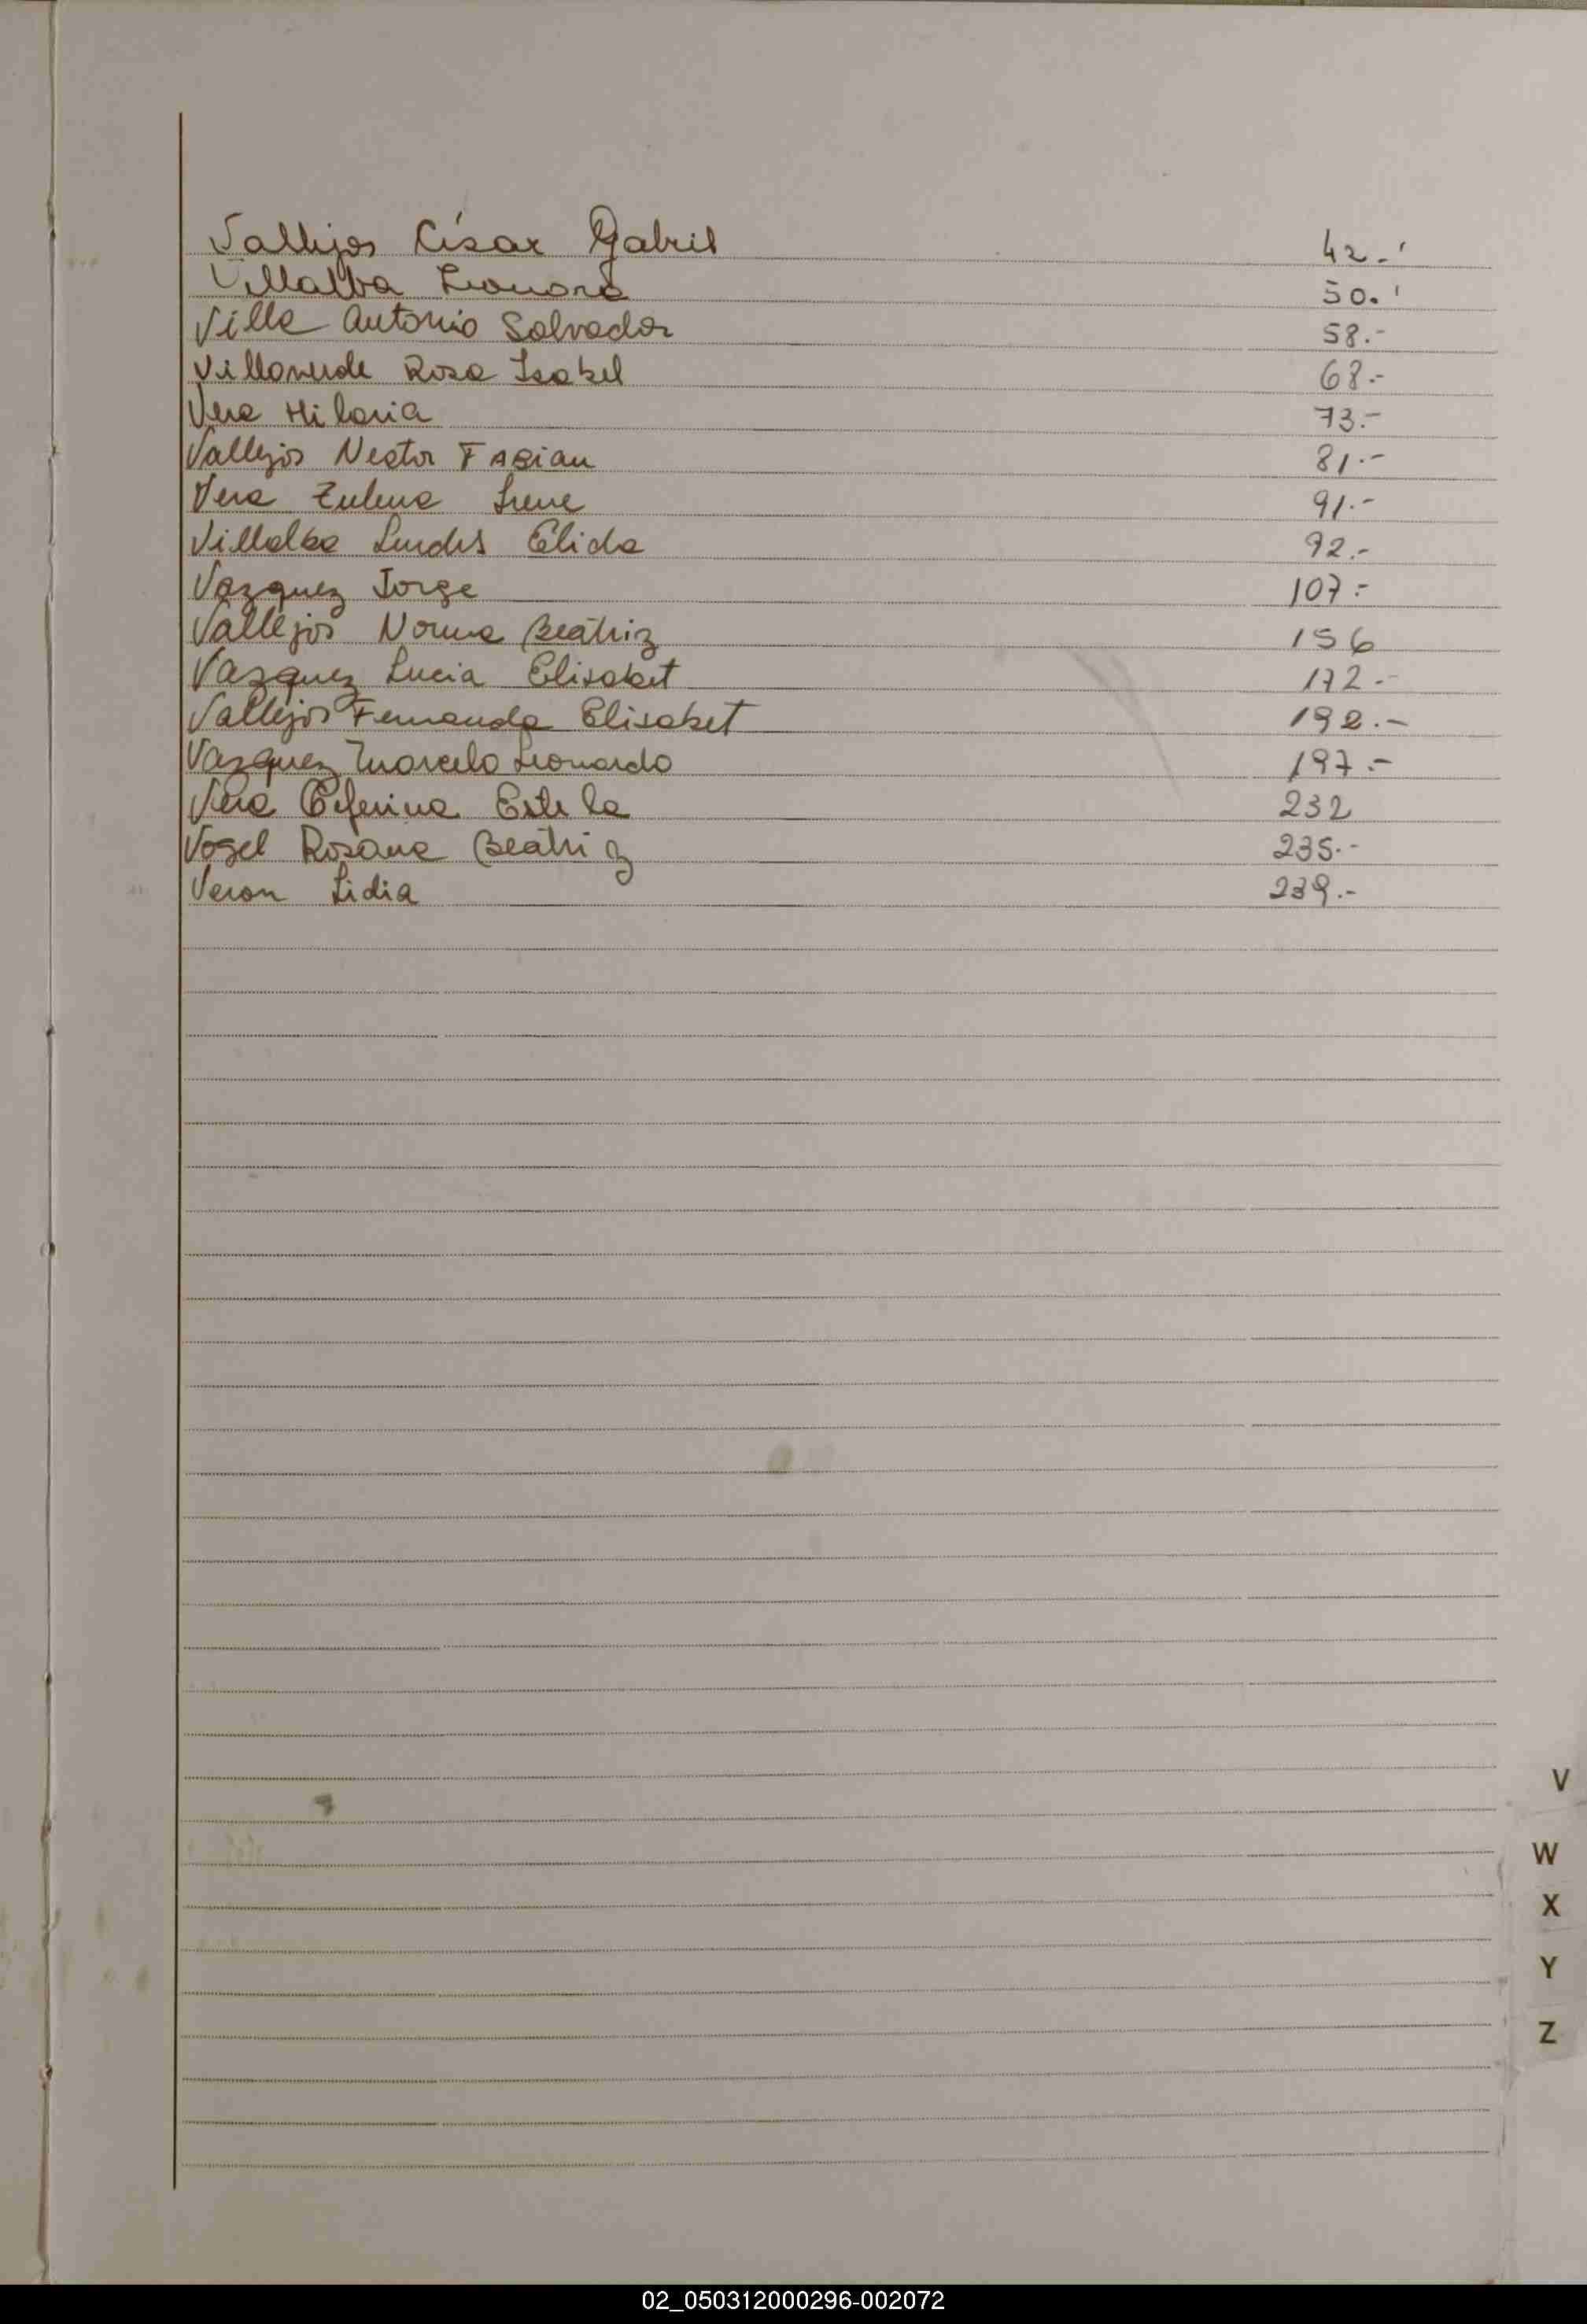 Vallejos César Gabriel 42.-
Villalba Leonora 50.-
Villa Antonio Salvador 58.-
Villaverde Rosa Isabel 68.-
Vera Hilaria 73.-
Vallejos Nestor FABian 81.-
Vera Zulema Irene 91.-
Villalba Lurdes Elida 92.-
Vazquez Jorge 107.-
Vallejos Norma Beatriz 156
Vazquez Lucia Elisabet 172.-
Vallejos Fernanda Elisabet 192.-
Vazquez Marcelo Leonardo 197.-
Vera Ceferina Estela 232
Vogel Rosana Beatriz 235.-
Veron Lidia 239.-
V
W
X
Y
Z
02_050312000296-002072